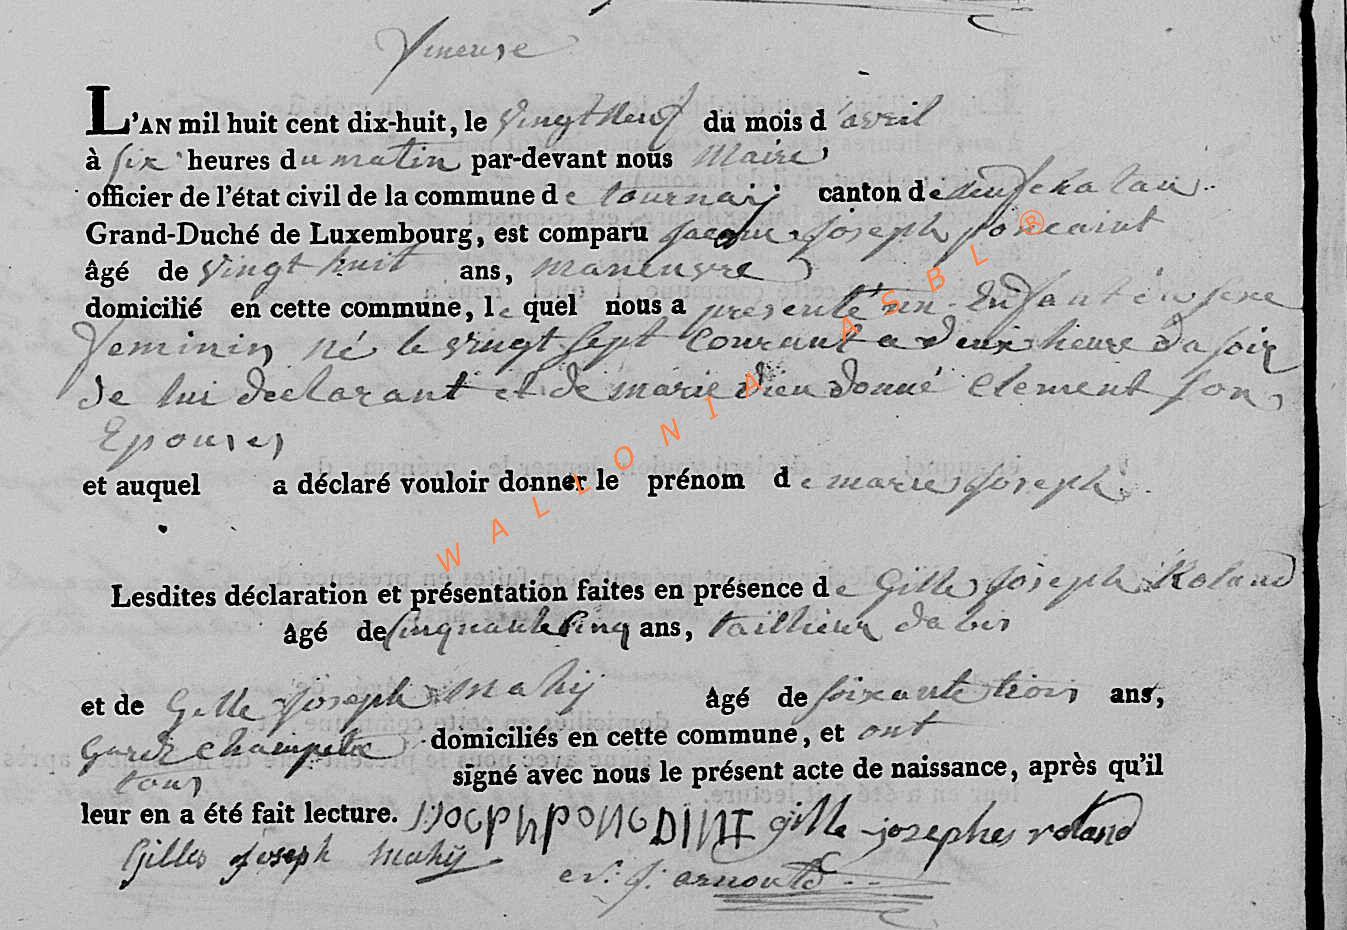 Vineuse
L'AN mil huit cent dix-huit, le vingt neuf du mois d'avril
à six heures du matin par-devant nous Maire
officier de l'état civil de la commune de tournay canton de neufchatau
Grand-Duché de Luxembourg, est comparu Jacque Joseph poncaint
âgé de vingt huit ans, maneuvre
domicilié en cette commune, le quel nous a présenté un Enfant du sexe
feminin né le vingt sept Courant a deux heure du soir
de lui declarant et de marie dieu donné Clement son
Epouse
et auquel a déclaré vouloir donner le prénom de marie Joseph
Lesdites déclaration et présentation faites en présence de Gille Joseph Roland
âgé de cinquante cinq ans, taillieur dabis
et de Gille Joseph Mahy âgé de soixante trois ans,
Garde champetre domiciliés en cette commune, et ont
tous signé avec nous le présent acte de naissance, après qu'il
leur en a été fait lecture. gille josephe roland
Gilles joseph mahy
j. arnould
WALLONIA ASBL ®